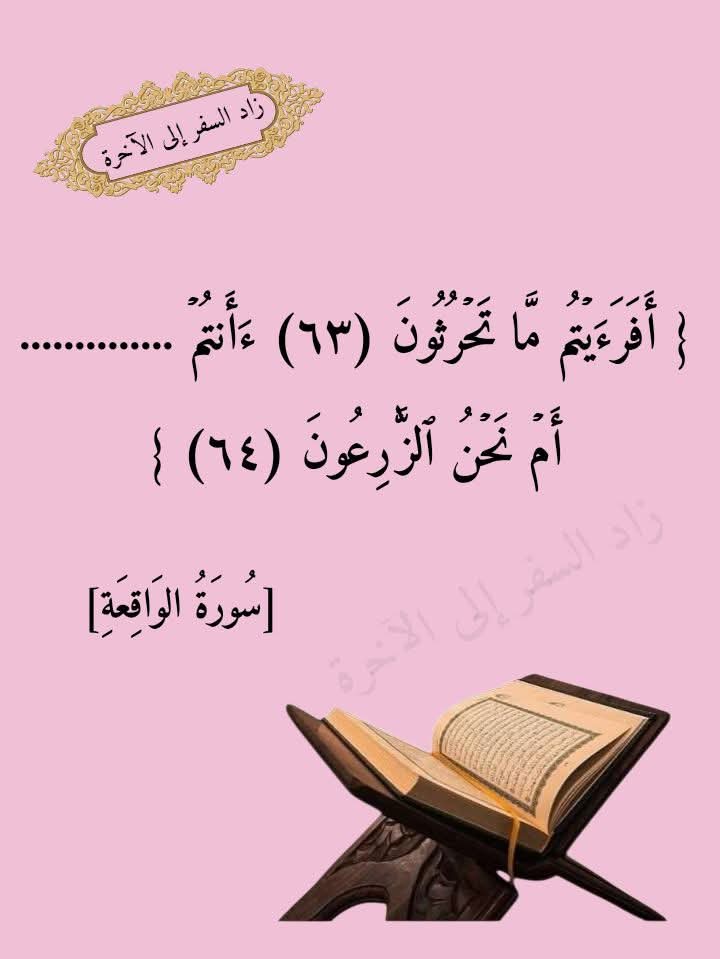 زاد السفر إلى الآخرة
{ أَفَرَءَيۡتُم مَّا تَحۡرُثُونَ (٦٣) ءَأَنتُمۡ ..............
أَمۡ نَحۡنُ ٱلزَّٰرِعُونَ (٦٤) }
[سُورَةُ الوَاقِعَةِ]
زاد السفر إلى الآخرة